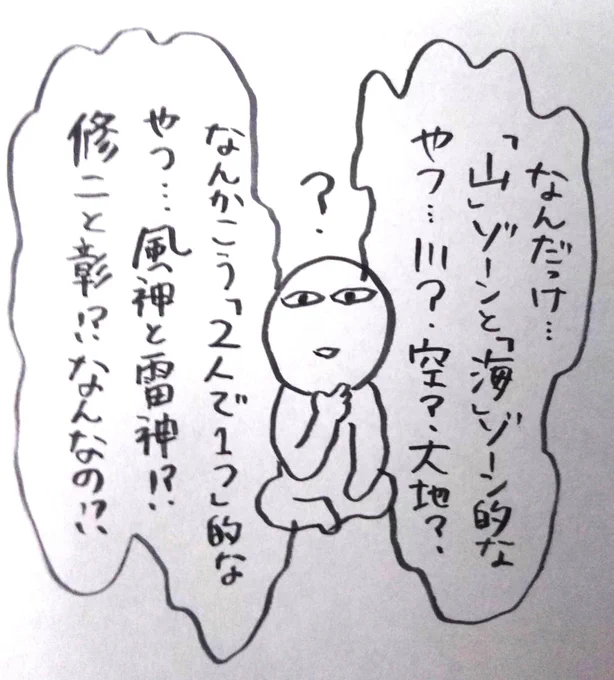 なんだっけ…
「山」ゾーンと「海」ゾーン的な
やつ…川?空?大地?
?
なんかこう「2人で1つ」的な
やつ…風神と雷神!?
修二と彰!?なんなの!?